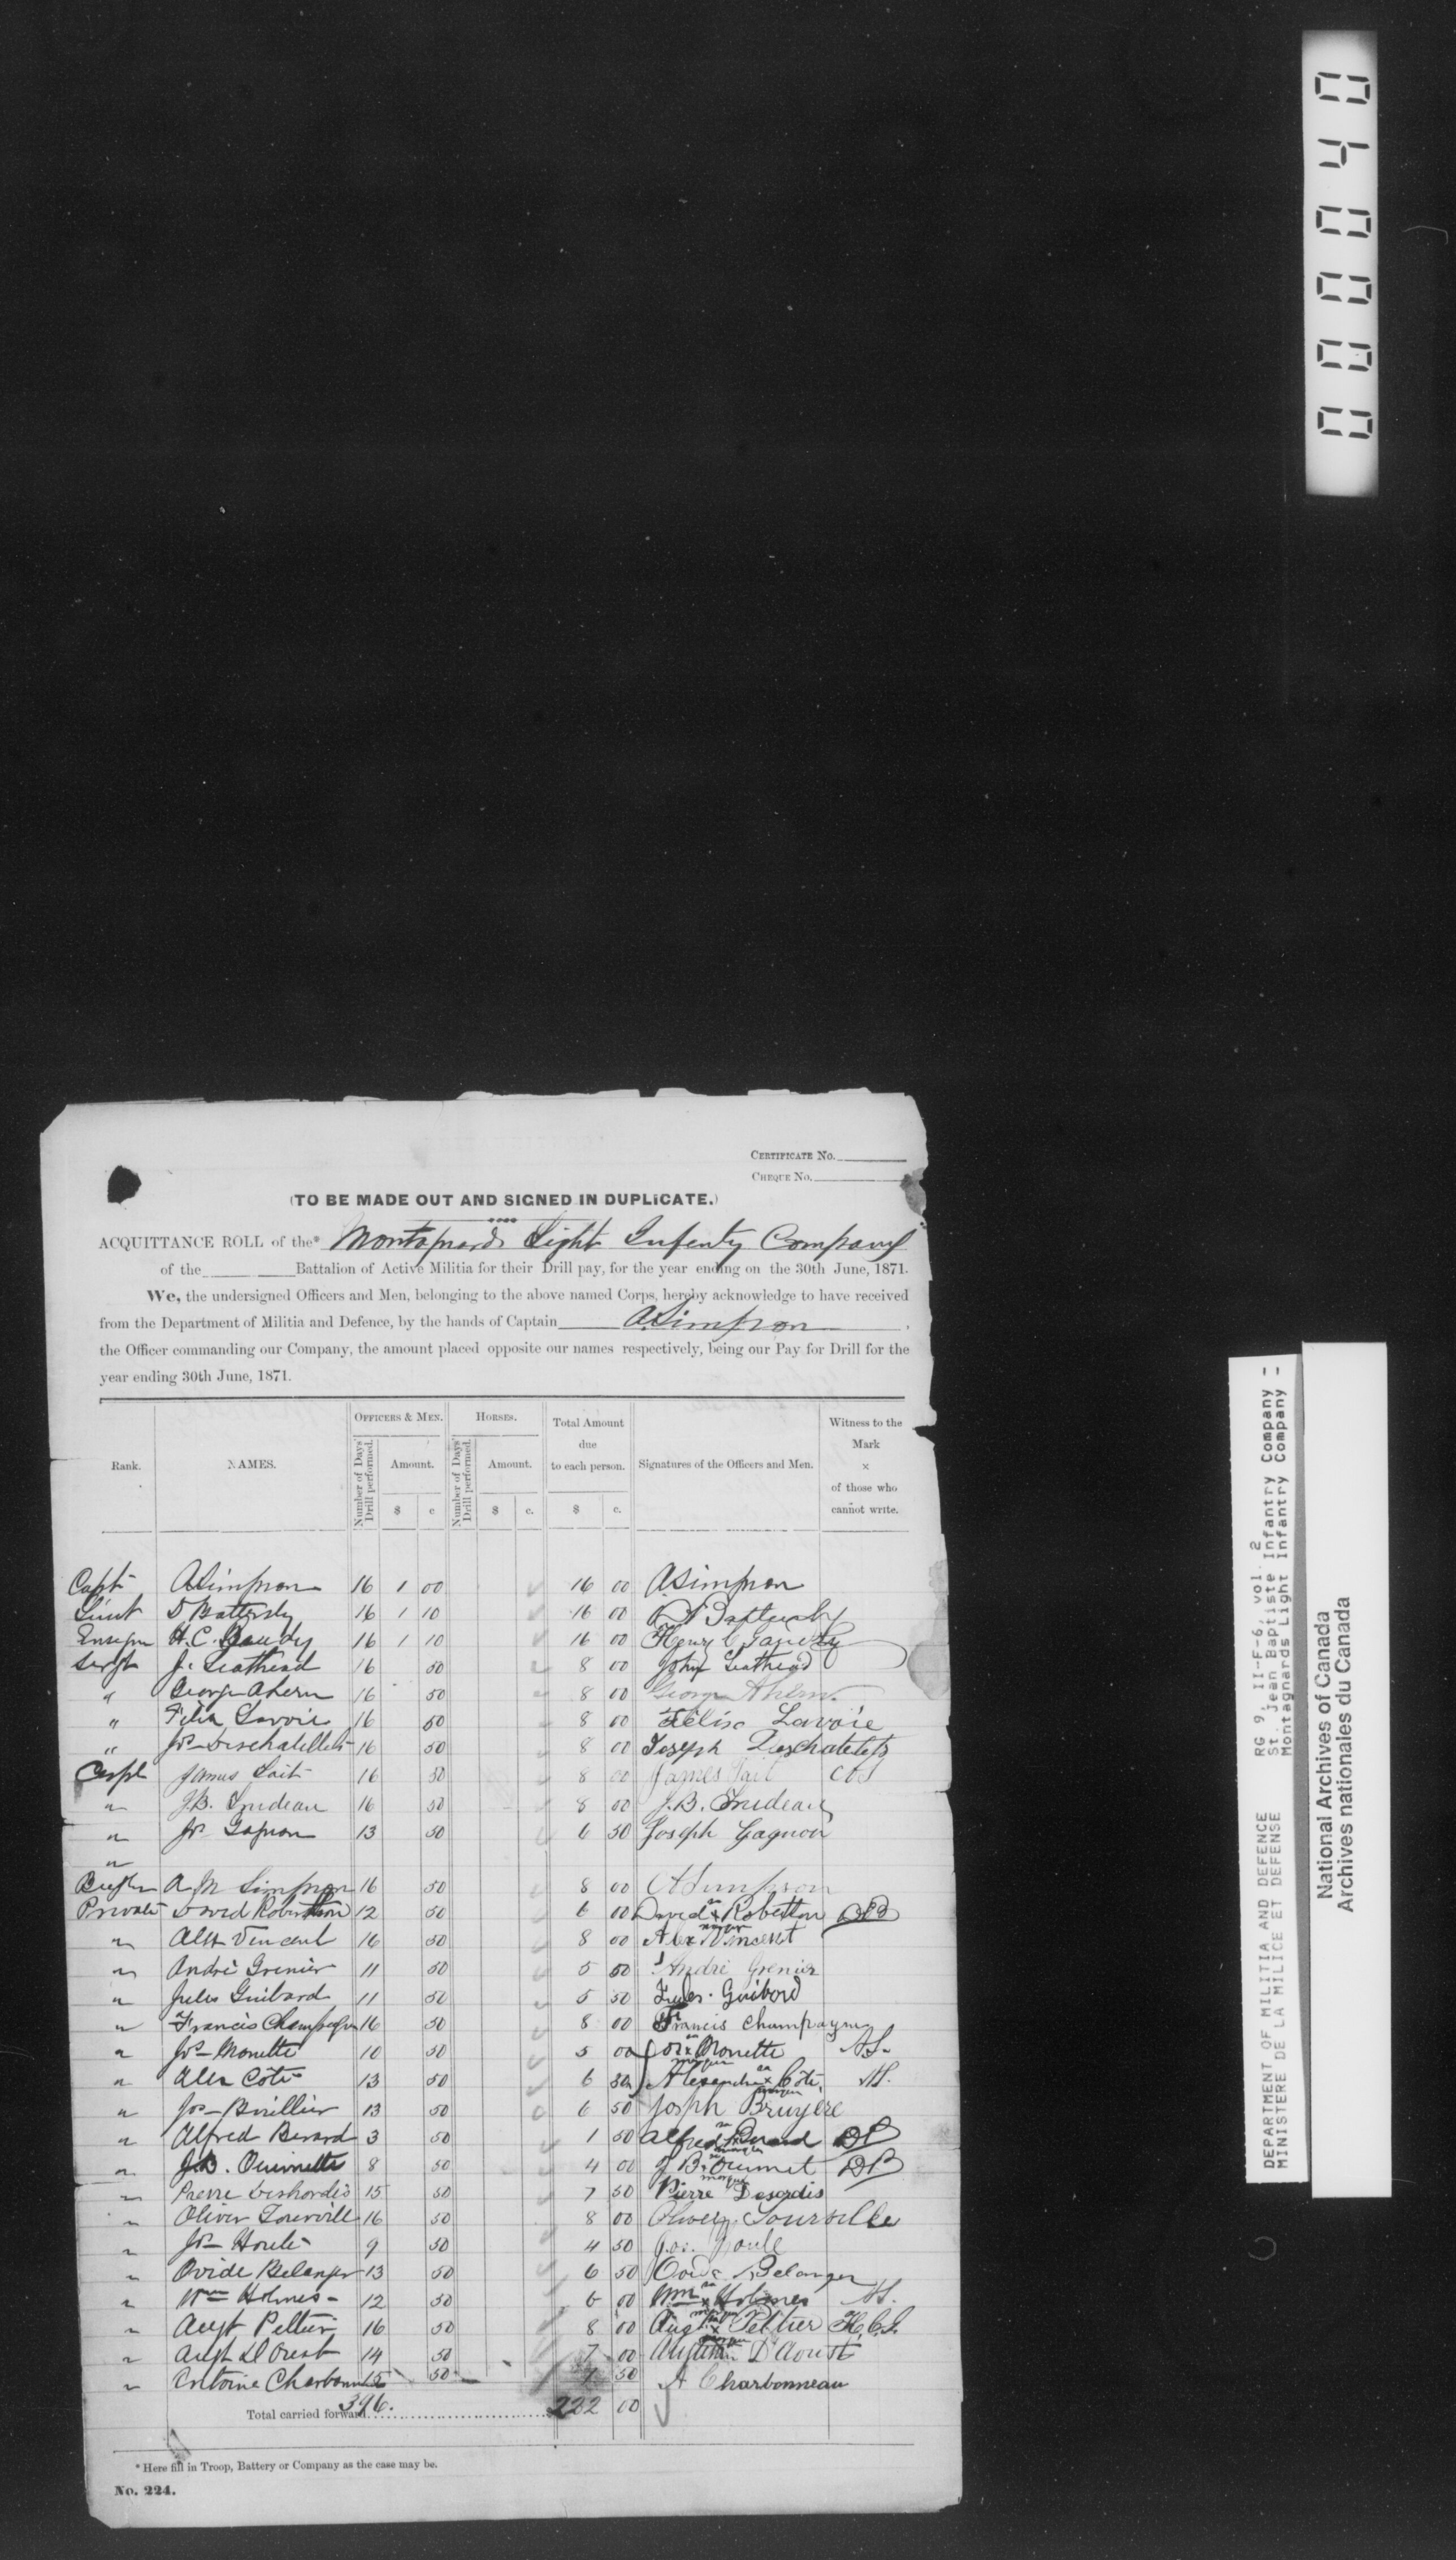 00040
CERTIFICATE No.
CHEQUE No.
(TO BE MADE OUT AND SIGNED IN DUPLICATE.)
ACQUITTANCE ROLL of the* Montagnards Light Infantry Company
of the Battalion of Active Militia for their Drill pay, for the year ending on the 30th June, 1871.
We, the undersigned Officers and Men, belonging to the above named Corps, hereby acknowledge to have received
from the Department of Militia and Defence, by the hands of Captain A Simpson,
the Officer commanding our Company, the amount placed opposite our names respectively, being our Pay for Drill for the
year ending 30th June, 1871.
Rank. NAMES. OFFICERS & MEN. HORSES. Total Amount due to each person. Signatures of the Officers and Men. Witness to the Mark × of those who cannot write.
Number of Days' Drill performed. Amount. Number of Days' Drill performed. Amount.
$ c $ c. $ c.
Capt A Simpson 16 1 00 16 00 A Simpson
Lieut D Battersby 16 1 10 16 00
Ensign H.C. Gandy 16 1 10 16 00 Henry C Gandy
Sergt J. Leathead 16 50 8 00 John Leathead
" George Ahern 16 50 8 00 George Ahern
" Felix Lavoie 16 50 8 00 Félix Lavoie
" Jos Deschatellets 16 50 8 00 Joseph Deschatelets
Corpl James Tait 16 50 8 00 James Tait
" J.B. Trudeau 16 50 8 00 J.B. Trudeau
" Jos Gagnon 13 50 6 50 Joseph Gagnon
"
Bugler A M Simpson 16 50 8 00 A Simpson
Private David Robertson 12 50 6 00 David x Robertson DB
" Alex Vincent 16 50 8 00 Alex Vincent
" André Grenier 11 50 5 50 André Grenier
" Jules Guibard 11 50 5 50 Jules Guibord
" Francis Champagne 16 50 8 00 Francis Champagne
" Jos Monette 10 50 5 00 Jos x Monette A.S.
" Alex Côté 13 50 6 50 Alexandre x Côté
" Jos 13 50 6 50 Joseph Bruyere
" Alfred Berard 3 50 1 50 Alfred x Berard DB
" J.B. Ouimette 8 50 4 00 J B x Ouimet DB
" Pierre 15 50 7 50 Pierre
" Oliver Tourville 16 50 8 00 Oliver Tourville
" Jos Houle 9 50 4 50 Jos. Houle
" Ovide Belanger 13 50 6 50 Ovide Belanger
" Wm Holmes 12 50 6 00 Wm x Holmes
" Augt Peltier 16 50 8 00 Aug x Peltier H.C.G.
" Augt D'Oust 14 50 7 00 D'Aoust
" Antoine Charbonneau 15 50 7 50 A Charbonneau
Total carried forward 396. 222 00
* Here fill in Troop, Battery or Company as the case may be.
No. 224.
DEPARTMENT OF MILITIA AND DEFENCE RG 9, II-F-6, vol 2
MINISTERE DE LA MILICE ET DEFENSE St. Jean Baptiste Infantry Company -
Montagnards Light Infantry Company -
National Archives of Canada
Archives nationales du Canada